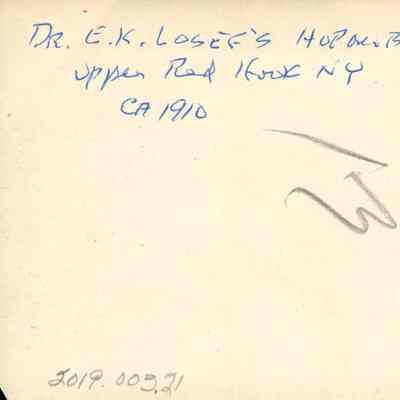 DR. E.K. LOSEE'S
Upper Red Hook NY
CA 1910
2019.003.21